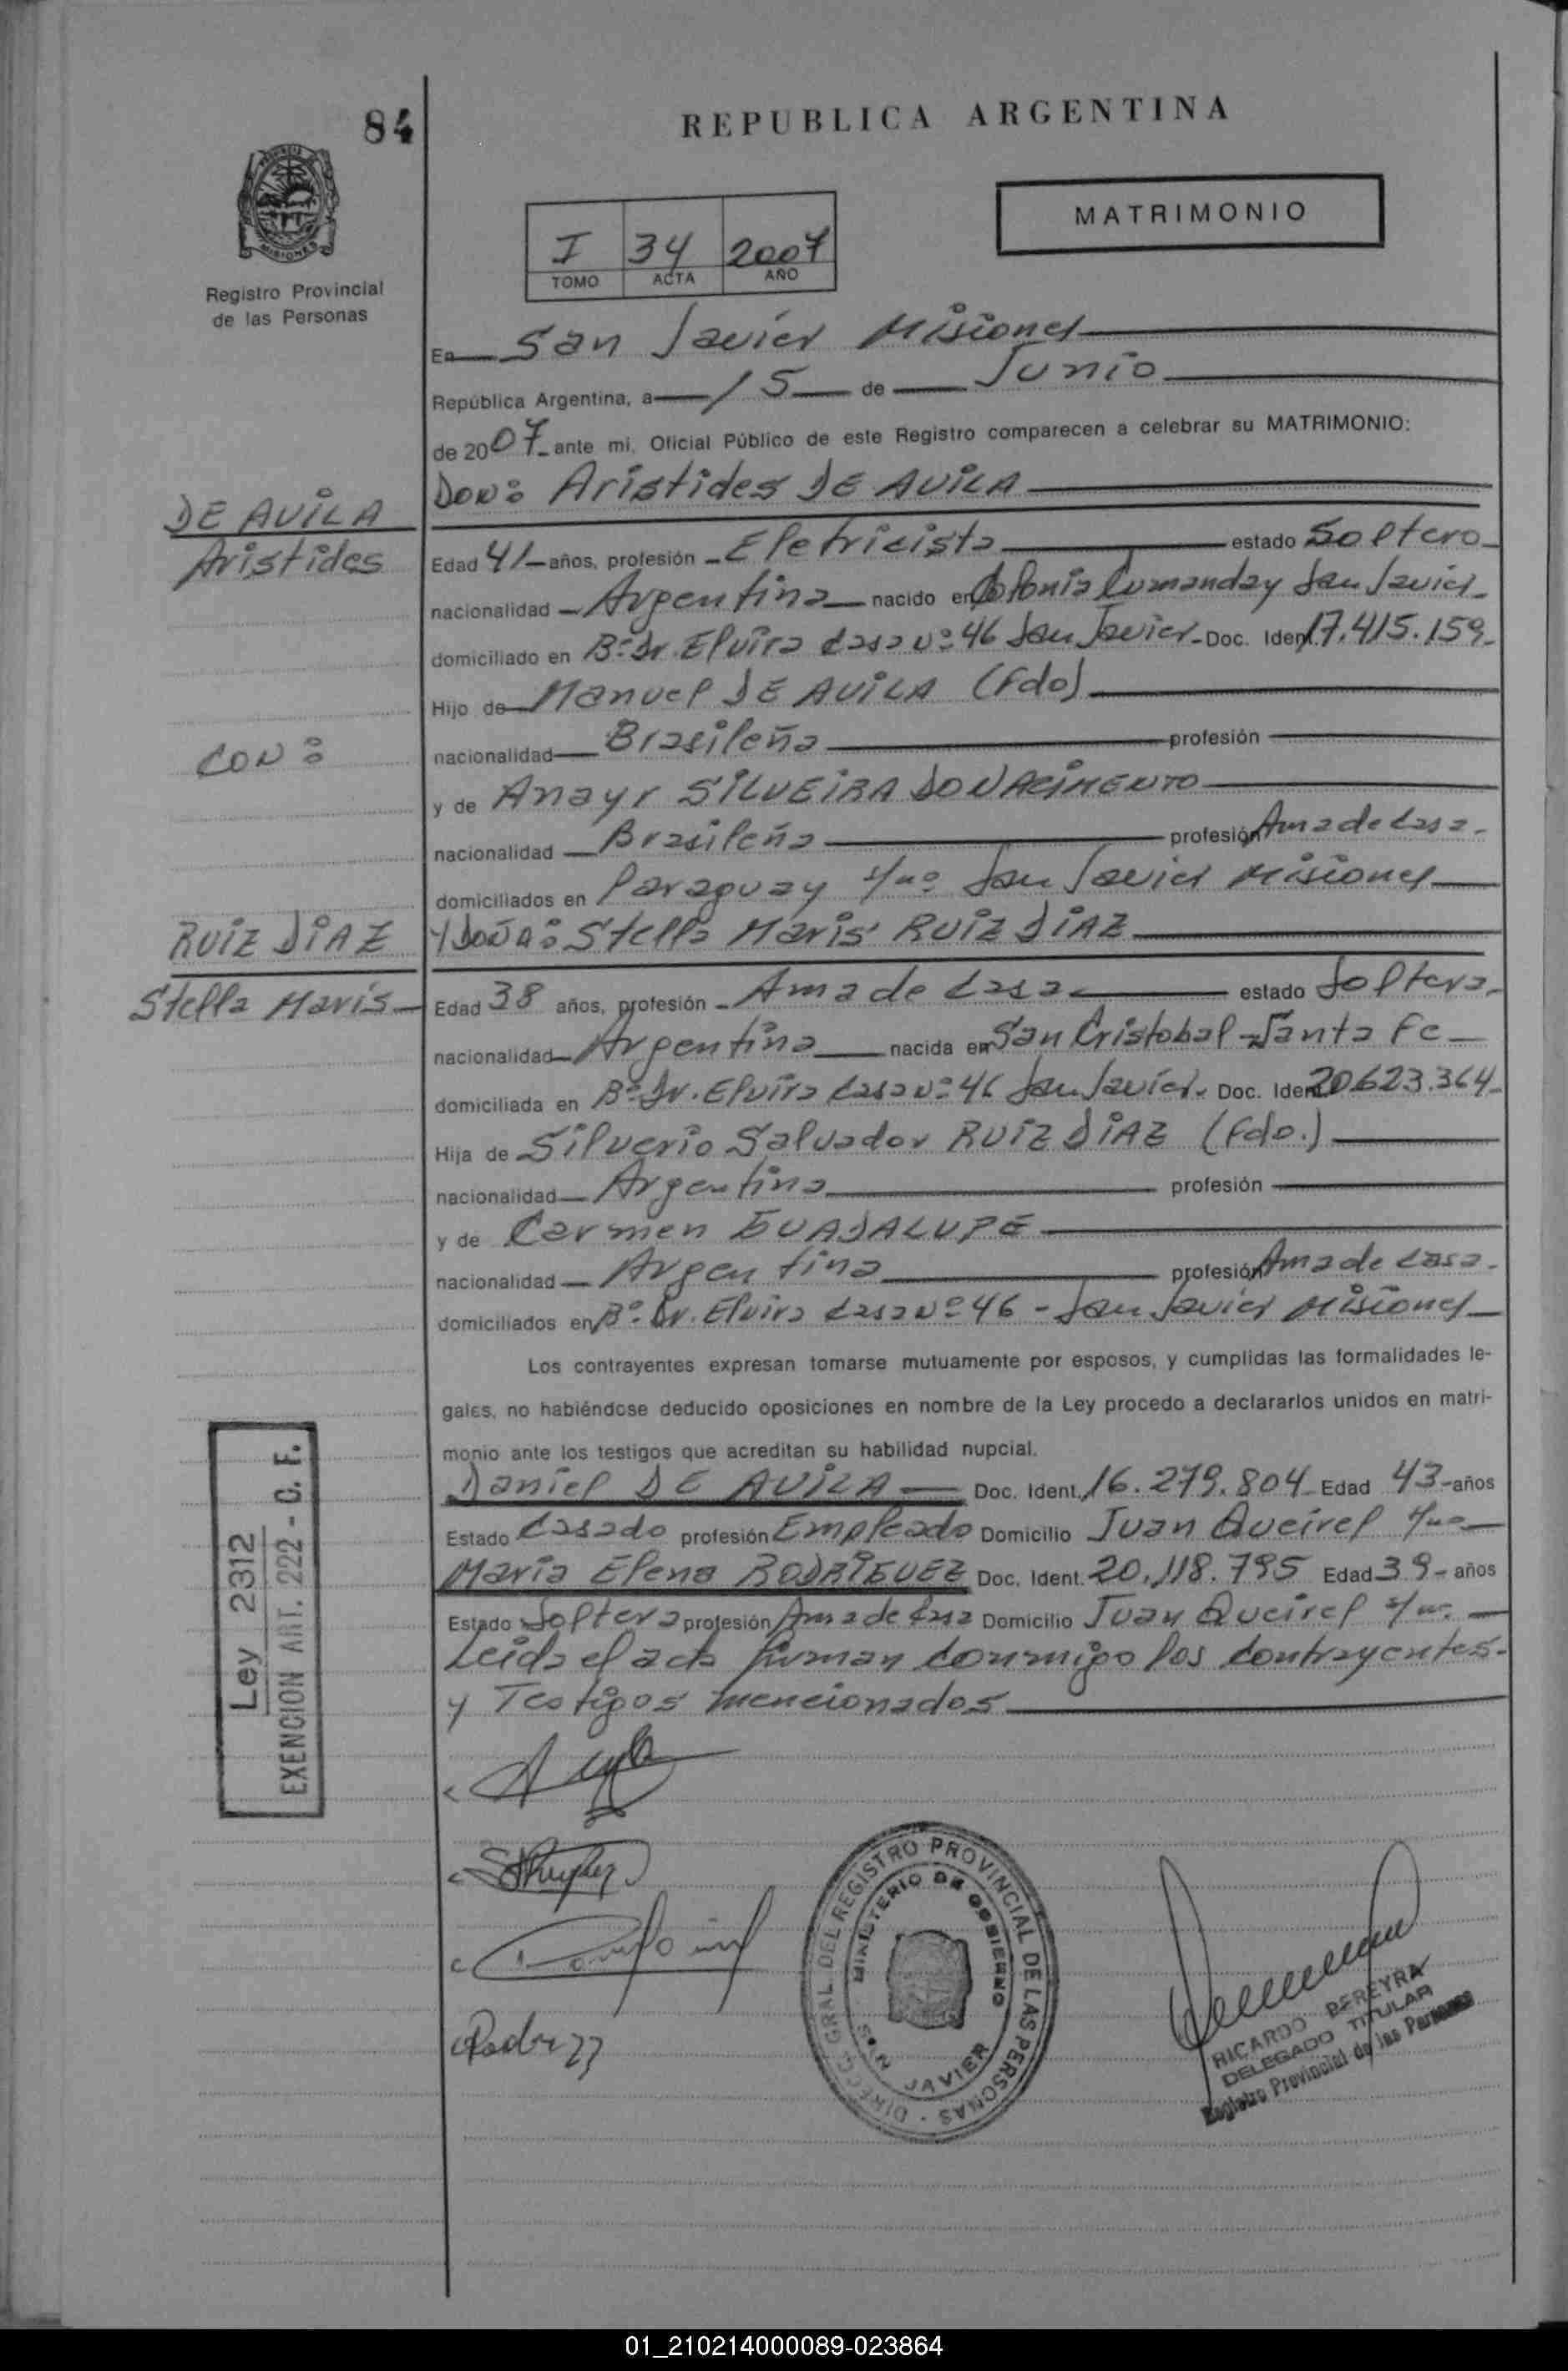 84
REPUBLICA ARGENTINA
MATRIMONIO
I 34 2007
TOMO ACTA AÑO
Registro Provincial
de las Personas
En San Javier Misiones
República Argentina, a 15 de Junio
de 2007 ante mi, Oficial Público de este Registro comparecen a celebrar su MATRIMONIO:
DON: Aristides DE AVILA
DE AVILA
Aristides
Edad 41 años, profesión Eletricista estado Soltero
nacionalidad Argentina nacido en Colonia Cumanday San Javier
domiciliado en Bº Dr. Elvira Casa Nº 46 San Javier Doc. Ident. 17.415.159
Hijo de Manuel DE AVILA (Fdo)
nacionalidad Brasileña profesión
CON:
y de Anayr SILVEIRA DO NACIMENTO
nacionalidad Brasileña profesión Ama de Casa
domiciliados en Paraguay s/nº San Javier Misiones
RUIZ DIAZ
Stella Maris
Y DOÑA: Stella Maris RUIZ DIAZ
Edad 38 años, profesión Ama de Casa estado Soltera
nacionalidad Argentina nacida en San Cristobal - Santa Fe
domiciliada en Bº Dr. Elvira Casa Nº 46 San Javier Doc. Ident. 20.623.364
Hija de Silverio Salvador RUIZ DIAZ (Fdo.)
nacionalidad Argentina profesión
y de Carmen GUADALUPE
nacionalidad Argentina profesión Ama de Casa
domiciliados en Bº Dr. Elvira Casa Nº 46 - San Javier Misiones
Los contrayentes expresan tomarse mutuamente por esposos, y cumplidas las formalidades le-
gales, no habiéndose deducido oposiciones en nombre de la Ley procedo a declararlos unidos en matri-
monio ante los testigos que acreditan su habilidad nupcial.
Daniel DE AVILA Doc. Ident. 16.279.804 Edad 43 años
Estado Casado profesión Empleado Domicilio Juan Queirel s/nº
Maria Elena RODRIGUEZ Doc. Ident. 20.118.795 Edad 39 años
Estado Soltera profesión Ama de Casa Domicilio Juan Queirel s/nº
Leida el acta firman conmigo los contrayentes
y Testigos mencionados
Ley 2312
EXENCION ART. 222 - C. F.
DIRECC. GRAL. DEL REGISTRO PROVINCIAL DE LAS PERSONAS
MINISTERIO DE GOBIERNO
SAN JAVIER
RICARDO PEREYRA
DELEGADO TITULAR
Registro Provincial de las Personas
01_210214000089-023864